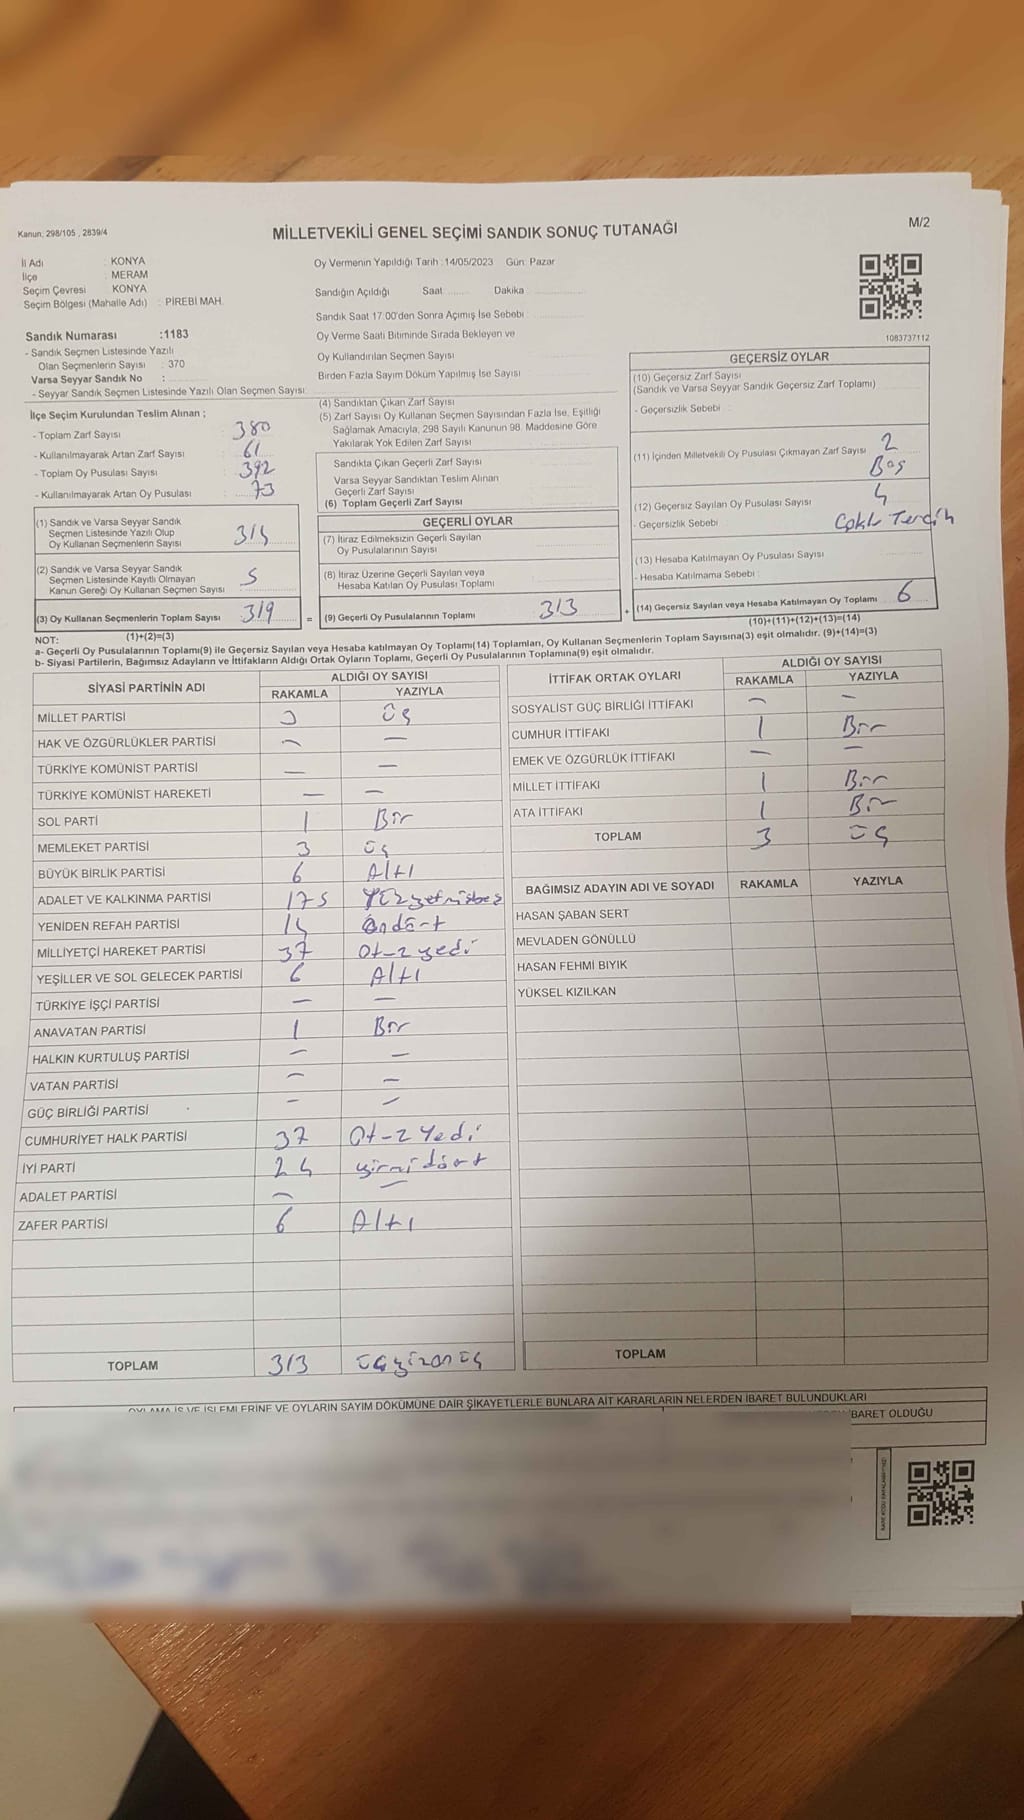 Kanun; 298/105 , 2839/4
MİLLETVEKİLİ GENEL SEÇİMİ SANDIK SONUÇ TUTANAĞI
M/2
İl Adı : KONYA
İlçe : MERAM
Seçim Çevresi : KONYA
Seçim Bölgesi (Mahalle Adı) : PİREBİ MAH.
Sandık Numarası :1183
- Sandık Seçmen Listesinde Yazılı
Olan Seçmenlerin Sayısı : 370
Varsa Seyyar Sandık No :
- Seyyar Sandık Seçmen Listesinde Yazılı Olan Seçmen Sayısı:
Oy Vermenin Yapıldığı Tarih :14/05/2023 Gün: Pazar
Sandığın Açıldığı Saat ........ Dakika ........
Sandık Saat 17.00'den Sonra Açımış İse Sebebi :
Oy Verme Saati Bitiminde Sırada Bekleyen ve
Oy Kullandırılan Seçmen Sayısı
Birden Fazla Sayım Döküm Yapılmış İse Sayısı
1083737112
İlçe Seçim Kurulundan Teslim Alınan ;
- Toplam Zarf Sayısı : 380
- Kullanılmayarak Artan Zarf Sayısı : 61
- Toplam Oy Pusulası Sayısı : 392
- Kullanılmayarak Artan Oy Pusulası : 73
(1) Sandık ve Varsa Seyyar Sandık
Seçmen Listesinde Yazılı Olup
Oy Kullanan Seçmenlerin Sayısı 314
(2) Sandık ve Varsa Seyyar Sandık
Seçmen Listesinde Kayıtlı Olmayan
Kanun Gereği Oy Kullanan Seçmen Sayısı 5
(3) Oy Kullanan Seçmenlerin Toplam Sayısı 319
(1)+(2)=(3)
(4) Sandıktan Çıkan Zarf Sayısı
(5) Zarf Sayısı Oy Kullanan Seçmen Sayısından Fazla İse, Eşitliği
Sağlamak Amacıyla, 298 Sayılı Kanunun 98. Maddesine Göre
Yakılarak Yok Edilen Zarf Sayısı
Sandıkta Çıkan Geçerli Zarf Sayısı
Varsa Seyyar Sandıktan Teslim Alınan
Geçerli Zarf Sayısı
(6) Toplam Geçerli Zarf Sayısı
GEÇERLİ OYLAR
(7) İtiraz Edilmeksizin Geçerli Sayılan
Oy Pusulalarının Sayısı
(8) İtiraz Üzerine Geçerli Sayılan veya
Hesaba Katılan Oy Pusulası Toplamı
= (9) Geçerli Oy Pusulalarının Toplamı 313
GEÇERSİZ OYLAR
(10) Geçersiz Zarf Sayısı
(Sandık ve Varsa Seyyar Sandık Geçersiz Zarf Toplamı)
- Geçersizlik Sebebi :
(11) İçinden Milletvekili Oy Pusulası Çıkmayan Zarf Sayısı 2
Boş
(12) Geçersiz Sayılan Oy Pusulası Sayısı 4
- Geçersizlik Sebebi : Çoklu Tercih
(13) Hesaba Katılmayan Oy Pusulası Sayısı
- Hesaba Katılmama Sebebi :
+ (14) Geçersiz Sayılan veya Hesaba Katılmayan Oy Toplamı 6
(10)+(11)+(12)+(13)=(14)
NOT:
a- Geçerli Oy Pusulalarının Toplamı(9) ile Geçersiz Sayılan veya Hesaba katılmayan Oy Toplamı(14) Toplamları, Oy Kullanan Seçmenlerin Toplam Sayısına(3) eşit olmalıdır. (9)+(14)=(3)
b- Siyasi Partilerin, Bağımsız Adayların ve İttifakların Aldığı Ortak Oyların Toplamı, Geçerli Oy Pusulalarının Toplamına(9) eşit olmalıdır.
SİYASİ PARTİNİN ADI
ALDIĞI OY SAYISI
RAKAMLA YAZIYLA
MİLLET PARTİSİ 3 üç
HAK VE ÖZGÜRLÜKLER PARTİSİ — —
TÜRKİYE KOMÜNİST PARTİSİ — —
TÜRKİYE KOMÜNİST HAREKETİ — —
SOL PARTİ 1 Bir
MEMLEKET PARTİSİ 3 üç
BÜYÜK BİRLİK PARTİSİ 6 Altı
ADALET VE KALKINMA PARTİSİ 175 Yüzyetmişbeş
YENİDEN REFAH PARTİSİ 14 öndört
MİLLİYETÇİ HAREKET PARTİSİ 37 Otuz yedi
YEŞİLLER VE SOL GELECEK PARTİSİ 6 Altı
TÜRKİYE İŞÇİ PARTİSİ — —
ANAVATAN PARTİSİ 1 Bir
HALKIN KURTULUŞ PARTİSİ — —
VATAN PARTİSİ — —
GÜÇ BİRLİĞİ PARTİSİ — —
CUMHURİYET HALK PARTİSİ 37 Otuz Yedi
İYİ PARTİ 24 yirmidört
ADALET PARTİSİ — —
ZAFER PARTİSİ 6 Altı
TOPLAM 313 üçyüzonüç
İTTİFAK ORTAK OYLARI
ALDIĞI OY SAYISI
RAKAMLA YAZIYLA
SOSYALİST GÜÇ BİRLİĞİ İTTİFAKI — —
CUMHUR İTTİFAKI 1 Bir
EMEK VE ÖZGÜRLÜK İTTİFAKI — —
MİLLET İTTİFAKI 1 Bir
ATA İTTİFAKI 1 Bir
TOPLAM 3 üç
BAĞIMSIZ ADAYIN ADI VE SOYADI RAKAMLA YAZIYLA
HASAN ŞABAN SERT
MEVLADEN GÖNÜLLÜ
HASAN FEHMİ BIYIK
YÜKSEL KIZILKAN
TOPLAM
OYLAMA İŞ VE İŞLEMLERİNE VE OYLARIN SAYIM DÖKÜMÜNE DAİR ŞİKAYETLERLE BUNLARA AİT KARARLARIN NELERDEN İBARET BULUNDUKLARI
İBARET OLDUĞU